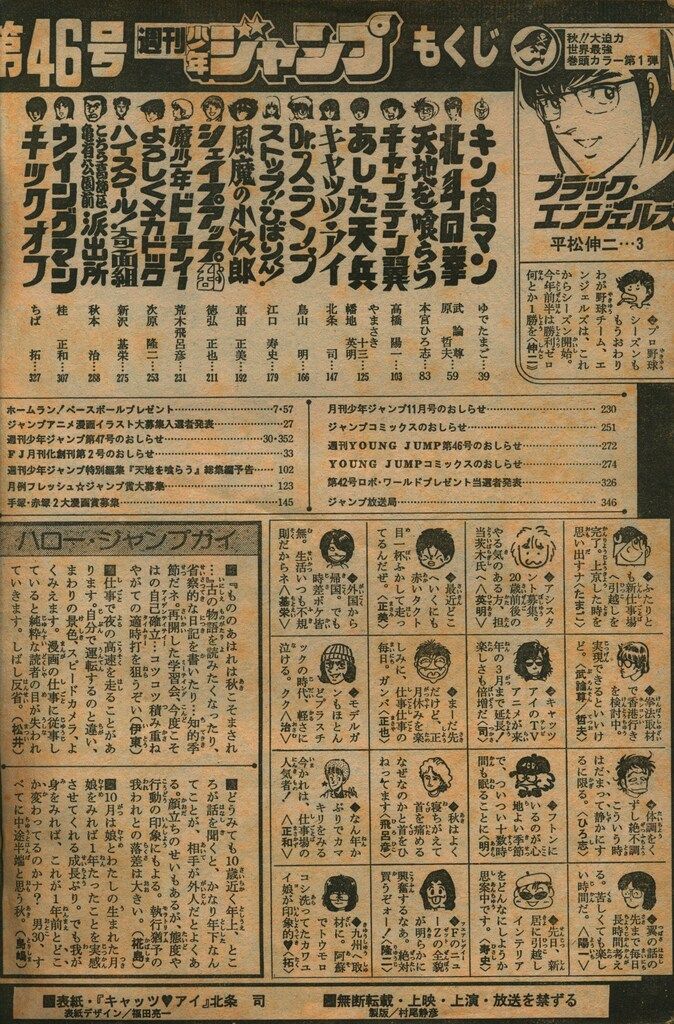 第46号 週刊少年ジャンプ もくじ
秋!!大迫力
世界最強
巻頭カラー第1弾
ブラック・
エンジェルズ
平松伸二…3
プロ野球
シーズンも
もうおわり
わが野球チーム、エ
ンジェルズは、これ
からシーズン開始。
今年前半は勝利ゼロ
何とか1勝を〈伸二〉
キン肉マン ゆでたまご…39
北斗の拳 武論尊 原哲夫…59
天地を喰らう 本宮ひろ志…83
キャプテン翼 高橋陽一…103
あした天兵 やまさき十三 幡地英明…125
キャッツ・アイ 北条司…147
Dr.スランプ 鳥山明…166
ストップ!!ひばりくん! 江口寿史…179
風魔の小次郎 車田正美…192
シェイプアップ乱 徳弘正也…211
魔少年ビーティー 荒木飛呂彦…231
よろしくメカドック 次原隆二…253
ハイスクール!奇面組 新沢基栄…275
こちら葛飾区亀有公園前派出所 秋本治…288
ウイングマン 桂正和…307
キックオフ ちば拓…327
ホームラン!ベースボールプレゼント……7・57
ジャンプアニメ漫画イラスト大募集入選者発表……27
週刊少年ジャンプ第47号のおしらせ……30・352
FJ月刊化創刊第2号のおしらせ……33
週刊少年ジャンプ特別編集『天地を喰らう』総集編予告……102
月例フレッシュ☆ジャンプ賞大募集……123
手塚・赤塚2大漫画賞募集……145
月刊少年ジャンプ11月号のおしらせ……230
ジャンプコミックスのおしらせ……251
週刊YOUNG JUMP第46号のおしらせ……272
YOUNG JUMPコミックスのおしらせ……274
第42号ロボ・ワールドプレゼント当選者発表……326
ジャンプ放送局……346
◆ふたりと
も新仕事場
へ引越しを
完了。上京した時を
思い出すナ〈たまご〉
◆アシスタ
ント募集。
20歳前後の
やる気のある方、担
当茨木氏へ〈英明〉
◆最近どこ
へいくにも
赤いタクト
目一杯ふかして走っ
てるんだぜ。〈正美〉
◆外国から
帰国。でも
時差ボケ皆
無。生活いつも不規
則だからネ〈基栄〉
◆拳法取材
で香港行き
を検討中。
実現できるといいけ
ど。〈武論尊/哲夫〉
◆キャッツ
アイのTV
アニメが来
年の3月まで延長。
楽しさも倍増だ〈司〉
◆まーだ先
だけど、正
月休みを楽
しみに、仕事仕事の
毎日。ガンバ〈正也〉
◆モデルガ
ンもほとん
どプラスチ
ックの時代。軽さに
泣ける。クク〈治〉
◆体調をく
ずし絶不調
こういう時
はだまって静かにす
るに限る。〈ひろ志〉
◆フトンに
いるのが心
地よい季節
で、ついつい十数時
間も眠ることに〈明〉
◆秋はよく
寝ちがえて
首を痛める
なぜなのかと首をひ
ねってます〈飛呂彦〉
◆なん年か
ぶりでカマ
キリをみる
今かれは、仕事場の
人気者!〈正和〉
◆翼の話の
先まで毎日
長時間考え
る。苦しくても楽し
い時間だ。〈陽一〉
◆先日、新
居に引越し
インテリア
をどんなにしようか
思案中です。〈寿史〉
◆FのニュZの全貌
が明らかに
興奮するなあ。絶対
買うぞォー!〈隆二〉
◆九州へ取
材に。阿蘇
でトウモロ
コシ洗ってたカワユ
イ娘が印象的♥〈拓〉
ハロー・ジャンプガイ
■『もののあはれは秋こそまされ
…』古の物語を読みたくなったり、
省察的な日記を書いたり…知的季
節だネ。再開した学習会。今度こそ
はの自己確立…コツコツ積み重ね
やがての適時打を狙うぞイ〈伊東〉
■仕事で夜の高速を走ることがあ
ります。自分で運転するのと違い、
まわりの景色、スピードカメラ、よ
くみえます。漫画の仕事に従事し
ていると純粋な読者の目が失われ
ていきます。しばし反省。〈松井〉
■どうみても10歳近く年上、とこ
ろが話を聞くと、かなり年下なん
てことが、相手が外人だとよくあ
る。顔立ちのせいもあるが態度や
行動の印象にもよる。執行猶予の
我われとの落差は大きい。〈花島〉
■10月は娘とわたしの生まれた月
娘をみれば1年たったことを実感
させてくれる成長ぶり。でも我が
身をみれば、これが1年前とどこ
か変わってるのかナ?男30、す
べてに中途半端と思う秋。〈鳥嶋〉
■表紙・『キャッツ♥アイ』北条 司
表紙デザイン/福田亮一
■無断転載・上映・上演・放送を禁ずる
製版/村尾静彦